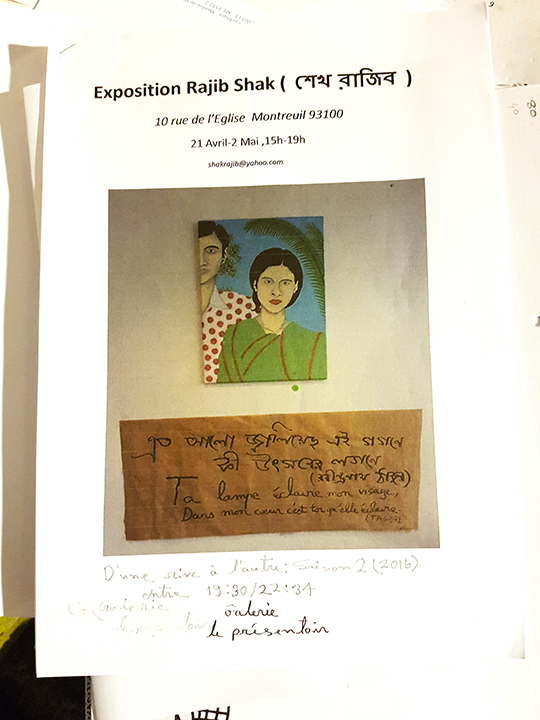 Exposition Rajib Shak ( শেখ রাজিব )
10 rue de l'Eglise Montreuil 93100
21 Avril-2 Mai ,15h-19h
shakrajib@yahoo.com
এত আলো জ্বালিয়েছ এই গগনে
কী উৎসবের লগনে
(রবীন্দ্রনাথ ঠাকুর)
Ta lampe éclaire mon visage,
Dans mon cœur c'est toi qu'elle éclaire.
(TAGORE)
D'une rive à l'autre: Saison 2 (2016)
entre 19:30/22:34
Galerie
le présentoir